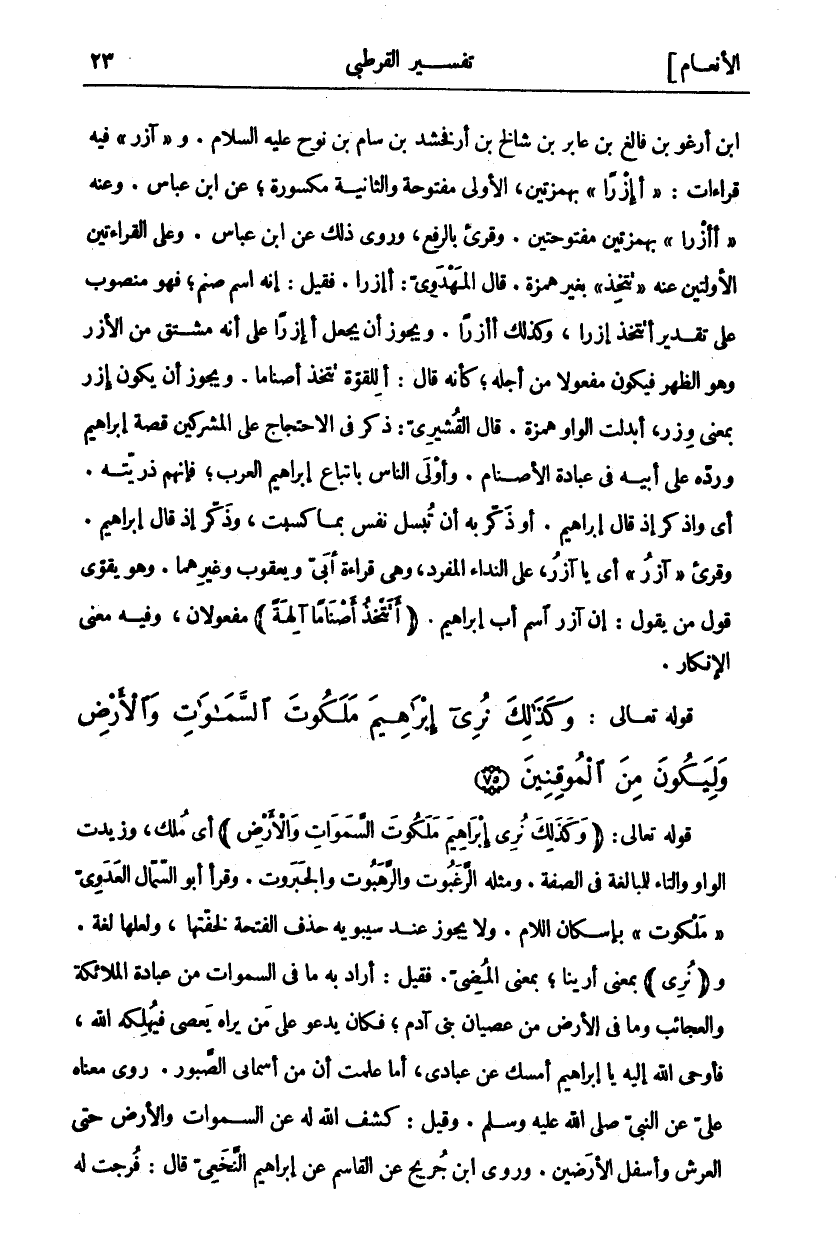 الأنعام] تفسير القرطبى ٢٣
ابن أرغو بن فالغ بن عابر بن شالخ بن أرفخشد بن سام بن نوح عليه السلام . و « آزر » فيه
قراءات : « أإِزْرًا » بهمزتين، الأولى مفتوحة والثانية مكسورة ؛ عن ابن عباس . وعنه
« أأَزْرا » بهمزتين مفتوحتين . وقرئ بالرفع، وروى ذلك عن ابن عباس . وعلى القراءتين
الأولتين عنه « تتخذ» بغير همزة . قال المَهْدَوِىّ : أإزرا . فقيل : إنه اسم صنم؛ فهو منصوب
على تقدير أتتخذ إزرا ، وكذلك أأزرًا . ويجوز أن يجعل أإزرًا على أنه مشتق من الأزر
وهو الظهر فيكون مفعولا من أجله ؛ كأنه قال : أللقوّة تتخذ أصناما . ويجوز أن يكون إزر
بمعنى وِزر، أبدلت الواو همزة . قال القُشيرىّ : ذكر فى الاحتجاج على المشركين قصة إبراهيم
وردّه على أبيه فى عبادة الأصنام . وأوْلَى الناس باتباع إبراهيم العرب ؛ فإنهم ذريّته .
أى واذكر إذ قال إبراهيم . أو ذَكّر به أن تُبسل نفس بما كسبت ، وذَكّر إذ قال إبراهيم .
وقرئ « آزرُ » أى يا آزرُ، على النداء المفرد، وهى قراءة أبَىّ ويعقوب وغيرهما . وهو يقوّى
قول من يقول : إن آزر آسم أب إبراهيم . ﴿ أَتَتَّخِذُ أَصْنَامًا آلِهَةً ﴾ مفعولان ، وفيه معنى
الإنكار .
قوله تعالى : وَكَذَٰلِكَ نُرِىٓ إِبْرَٰهِيمَ مَلَكُوتَ ٱلسَّمَٰوَٰتِ وَٱلْأَرْضِ
وَلِيَكُونَ مِنَ ٱلْمُوقِنِينَ ٧٥
قوله تعالى : ﴿ وَكَذَلِكَ نُرِى إِبْرَاهِيمَ مَلَكُوتَ السَّمَوَاتِ وَالْأَرْضِ ﴾ أى مُلك ، وزيدت
الواو والتاء للبالغة فى الصفة . ومثله الرَّغَبُوت والرَّهَبُوت والجَبَرَوت . وقرأ أبو السّمّال العَدَوِىّ
« مَلْكوت » بإسكان اللام . ولا يجوز عند سيبويه حذف الفتحة لخفّتها ، ولعلها لغة .
و ﴿ نُرِى ﴾ بمعنى أرينا ؛ بمعنى المُضِىّ . فقيل : أراد به ما فى السموات من عبادة الملائكة
والعجائب وما فى الأرض من عصيان بنى آدم ؛ فكان يدعو على مَن يراه يَعصى فيُهلِكه الله ،
فأوحى الله إليه يا إبراهيم أمسك عن عبادى، أما علمت أن من أسمائى الصَّبور . روى معناه
علىّ عن النبىّ صلى الله عليه وسلم . وقيل : كشف الله له عن السموات والأرض حتى
العرش وأسفل الأرَضين . وروى ابن جُريج عن القاسم عن إبراهيم النَّخَعِىّ قال : فُرجت له